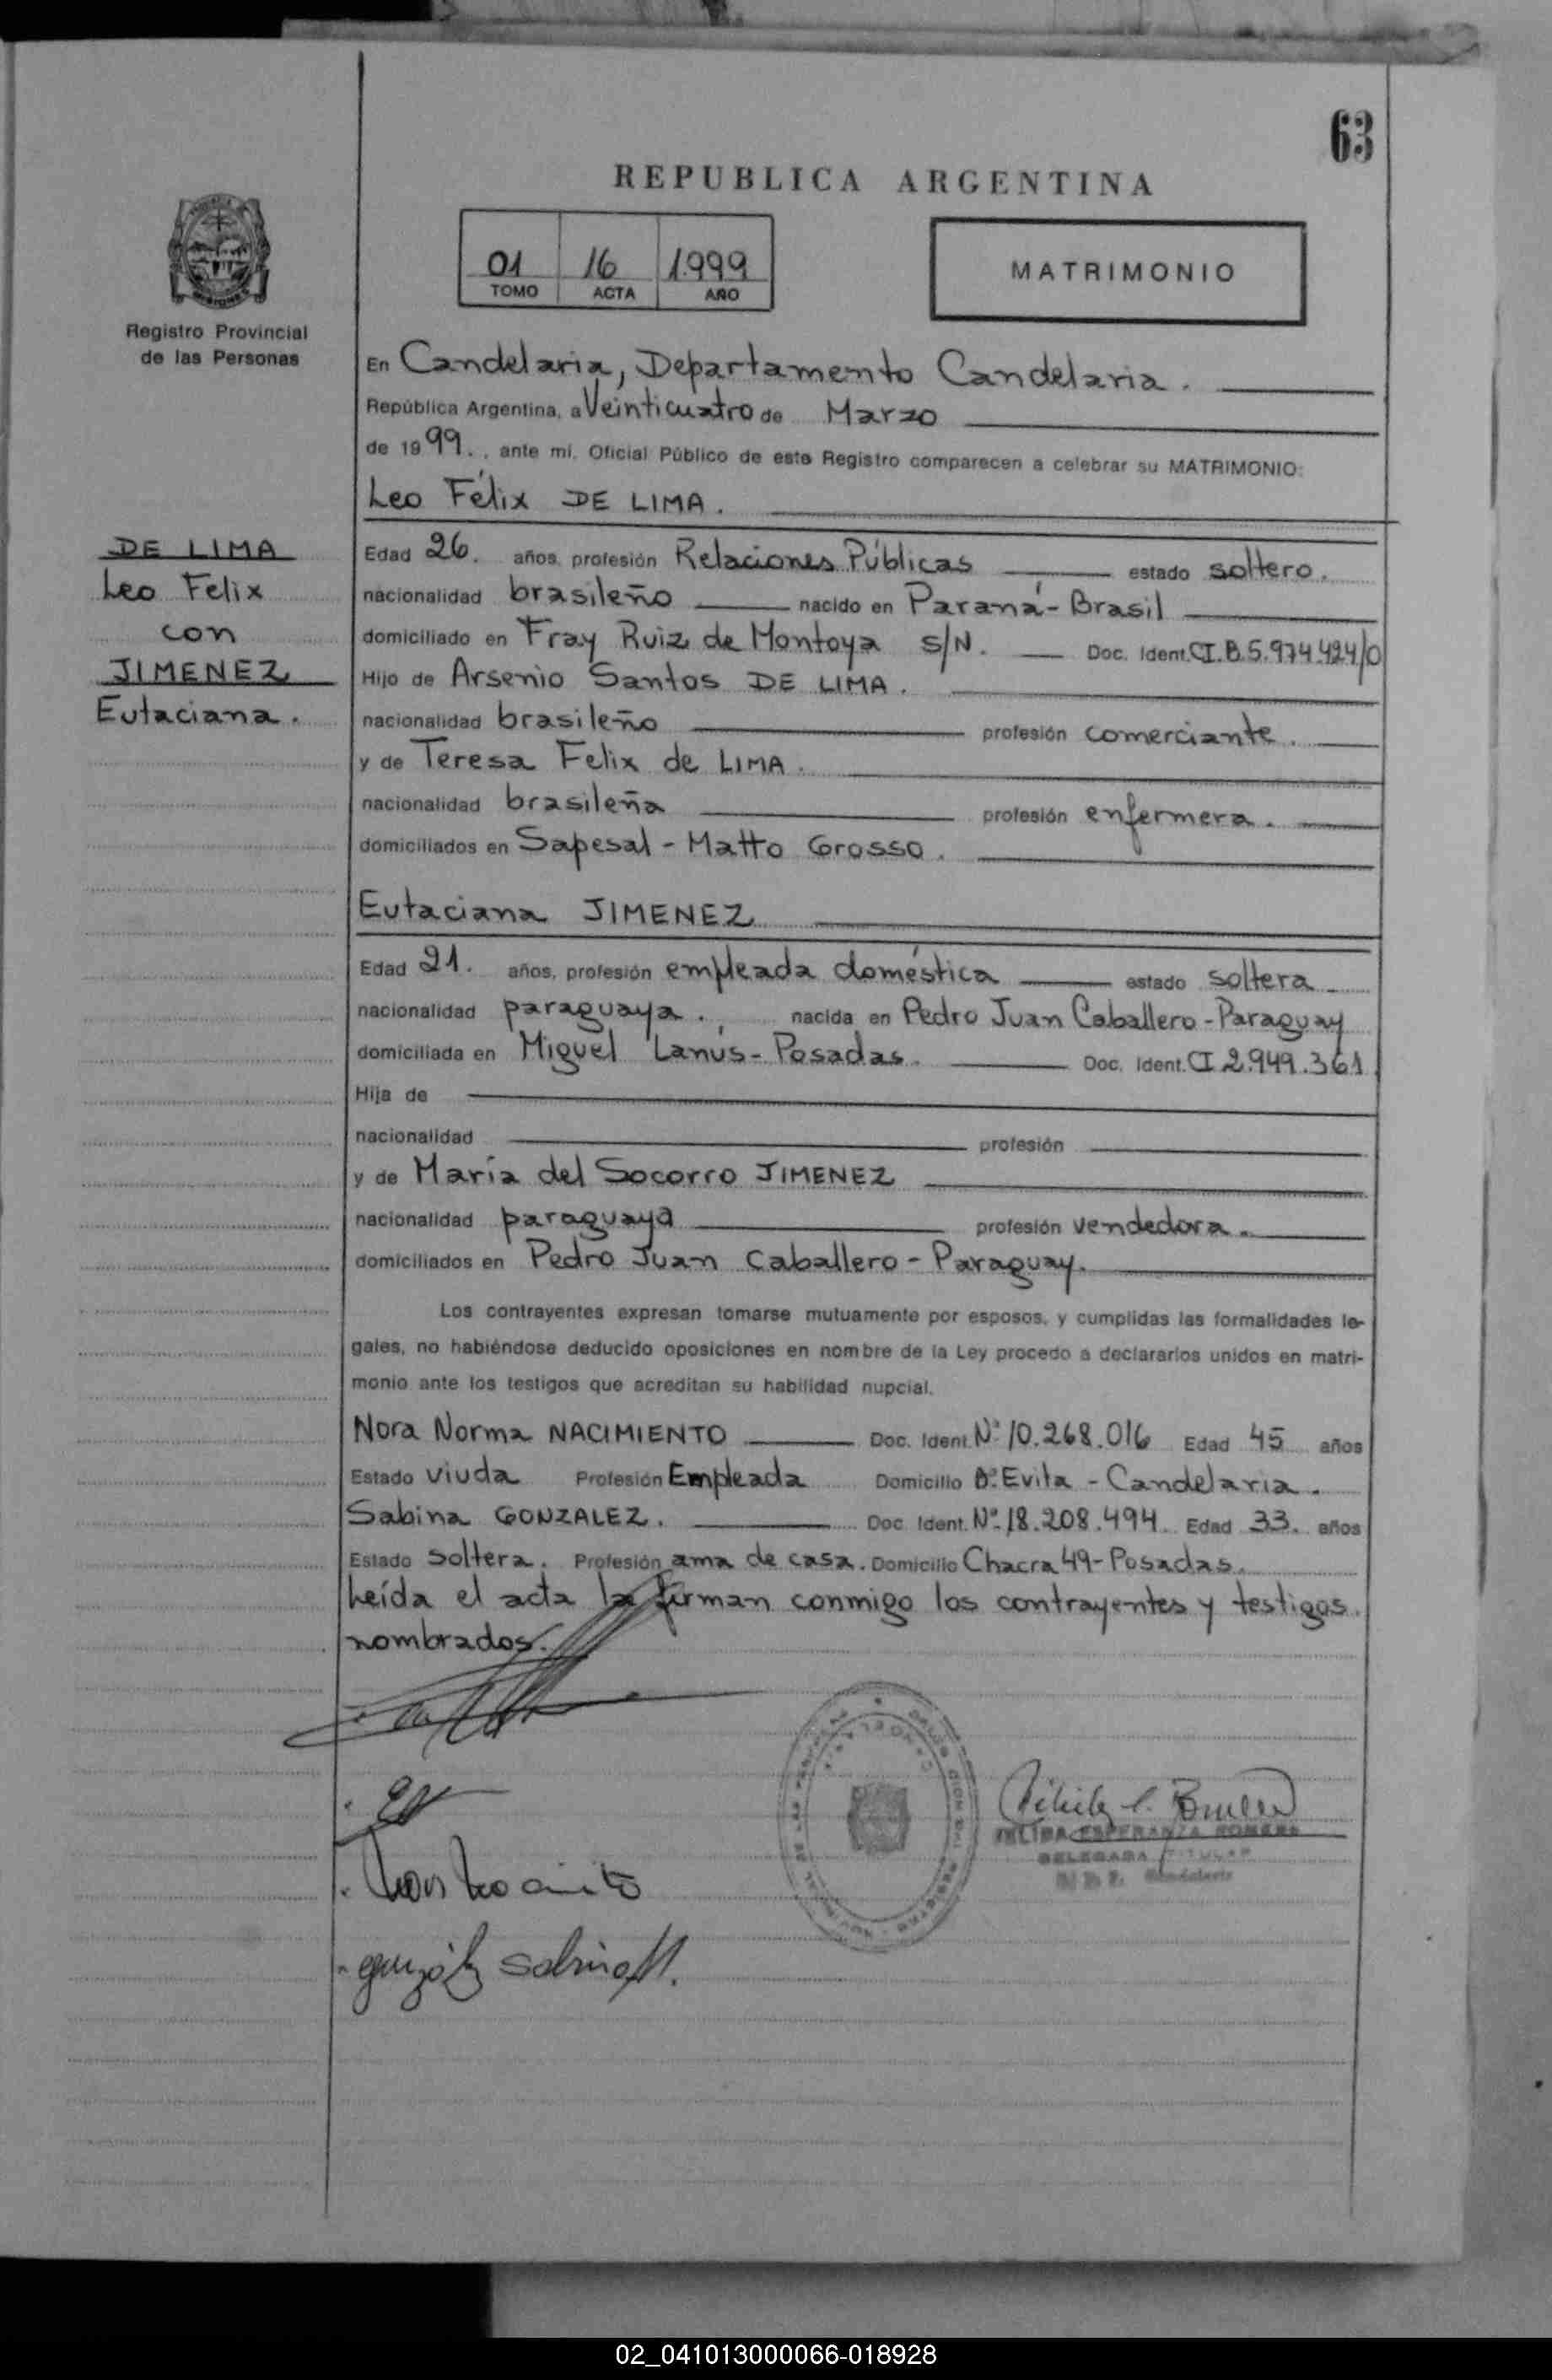 63
REPUBLICA ARGENTINA
01 16 1.999
TOMO ACTA AÑO
MATRIMONIO
Registro Provincial
de las Personas
En Candelaria, Departamento Candelaria.
República Argentina, a Veinticuatro de Marzo
de 1999., ante mí, Oficial Público de este Registro comparecen a celebrar su MATRIMONIO:
Leo Félix DE LIMA.
DE LIMA
Leo Felix
con
JIMENEZ
Eutaciana.
Edad 26. años, profesión Relaciones Públicas estado soltero.
nacionalidad brasileño nacido en Paraná - Brasil
domiciliado en Fray Ruiz de Montoya S/N. Doc. Ident. CI.B.5.974.424/0
Hijo de Arsenio Santos DE LIMA.
nacionalidad brasileño profesión comerciante.
y de Teresa Felix de LIMA.
nacionalidad brasileña profesión enfermera.
domiciliados en Sapesal - Matto Grosso.
Eutaciana JIMENEZ
Edad 21. años, profesión empleada doméstica estado soltera
nacionalidad paraguaya. nacida en Pedro Juan Caballero - Paraguay
domiciliada en Miguel Lanús - Posadas. Doc. Ident. CI 2.949.361
Hija de
nacionalidad profesión
y de María del Socorro JIMENEZ
nacionalidad paraguaya profesión vendedora.
domiciliados en Pedro Juan Caballero - Paraguay.
Los contrayentes expresan tomarse mutuamente por esposos, y cumplidas las formalidades le-
gales, no habiéndose deducido oposiciones en nombre de la Ley procedo a declararlos unidos en matri-
monio ante los testigos que acreditan su habilidad nupcial.
Nora Norma NACIMIENTO Doc. Ident. Nº 10.268.016 Edad 45 años
Estado viuda Profesión Empleada Domicilio Bº. Evita - Candelaria.
Sabina GONZALEZ. Doc. Ident. Nº. 18.208.494 Edad 33. años
Estado soltera. Profesión ama de casa. Domicilio Chacra 49 - Posadas.
Leída el acta la firman conmigo los contrayentes y testigos
nombrados.
ESPERANZA ROMERO
DELEGADA TITULAR
González Sabina
02_041013000066-018928